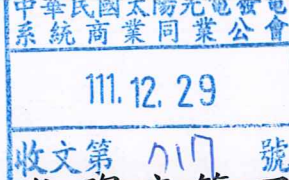 中華民國太陽光電發電
系統商業同業公會
111.12.29
收文第 717 號